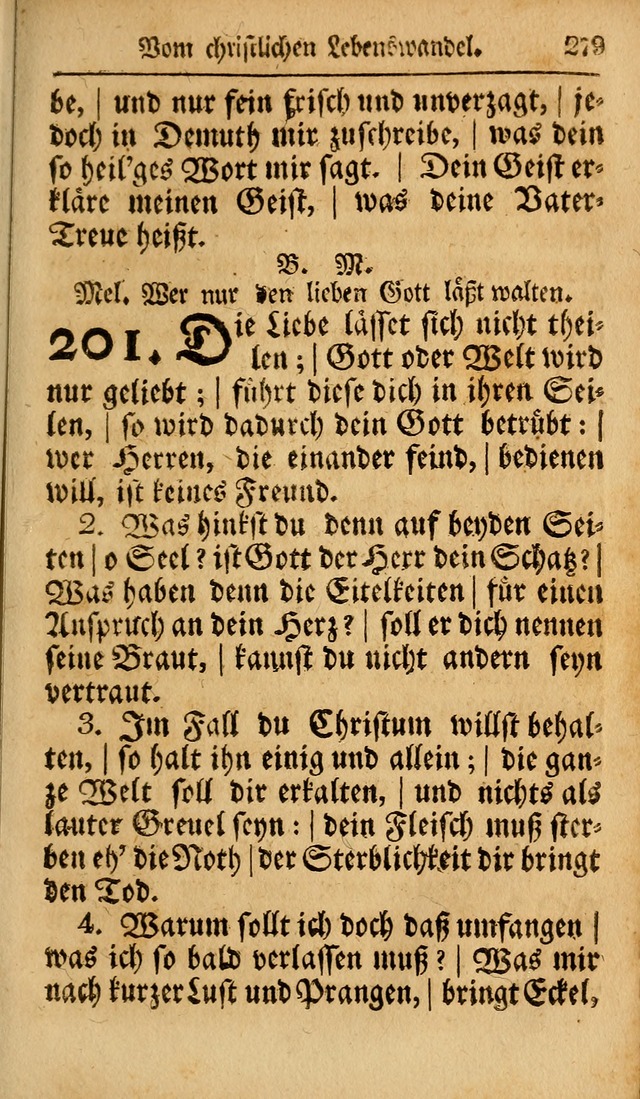 Vom christlichen Lebenswandel. 279
be, | und nur fein frisch und unverzagt, | je-
doch in Demuth mir zuschreibe, | was dein
so heil'ges Wort mir sagt. | Dein Geist er-
kläre meinen Geist, | was deine Vater-
Treue heißt.
B. M.
Mel. Wer nur den lieben Gott läßt walten.
201. Die Liebe lässet sich nicht thei-
len; | Gott oder Welt wird
nur geliebt; | führt diese dich in ihren Sei-
len, | so wird dadurch dein Gott betrübt: |
wer Herren, die einander feind, | bedienen
will, ist keines Freund.
2. Was hinkst du denn auf beyden Sei-
ten | o Seel? ist Gott der Herr dein Schatz? |
Was haben denn die Eitelkeiten | für einen
Anspruch an dein Herz? | soll er dich nennen
seine Braut, | kannst du nicht andern seyn
vertraut.
3. Im Fall du Christum willst behal-
ten, | so halt ihn einig und allein; | die gan-
ze Welt soll dir erkalten, | und nichts als
lauter Greuel seyn: | dein Fleisch muß ster-
ben eh' die Noth | der Sterblichkeit dir bringt
den Tod.
4. Warum sollt ich doch daß umfangen |
was ich so bald verlassen muß? | Was mir
nach kurzer Lust und Prangen, | bringt Eckel,